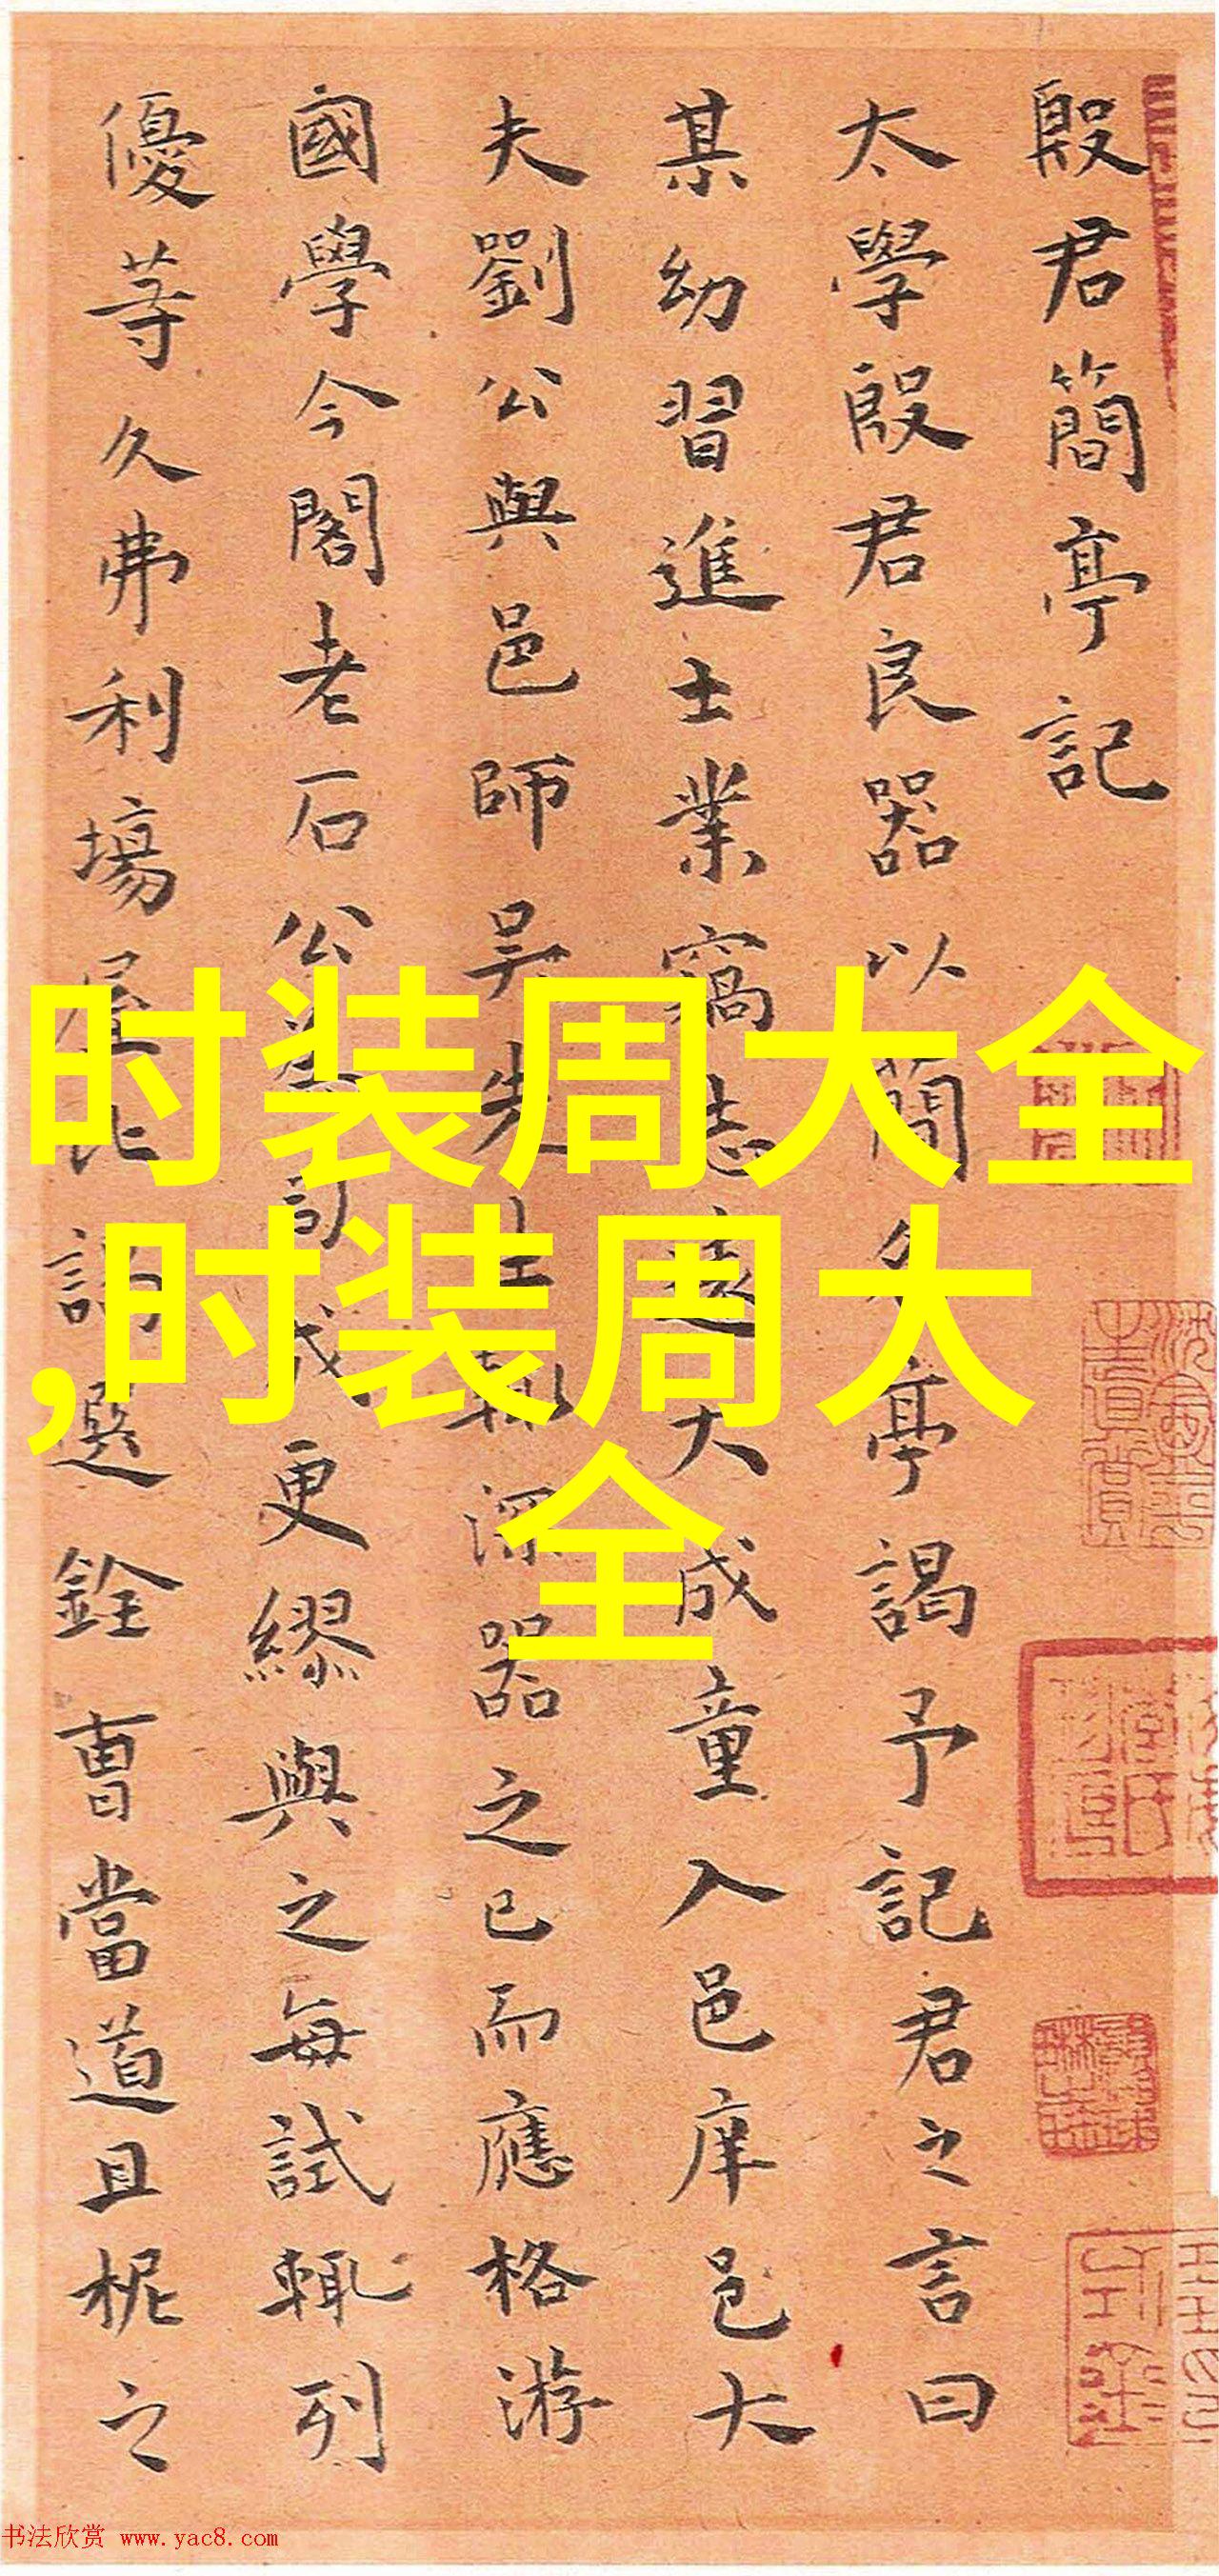 殷君簡亭記
太學殷君良器以簡名亭謁予記君之言曰
某幼習進士業竊志遠大成童入邑庠邑大
夫劉公與邑師吳先生輒深器之已而應格游
國學今閣老石公公司成更繆與之每試輒列
優等久弗利場屋比謁選銓曹當道且柅之
时装周大全
,时装周大
全
书法欣赏 www.yac8.com